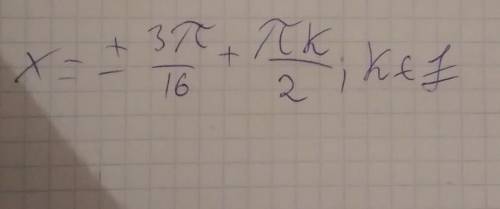 x = ± 3π/16 + πk/2; k ∈ Z